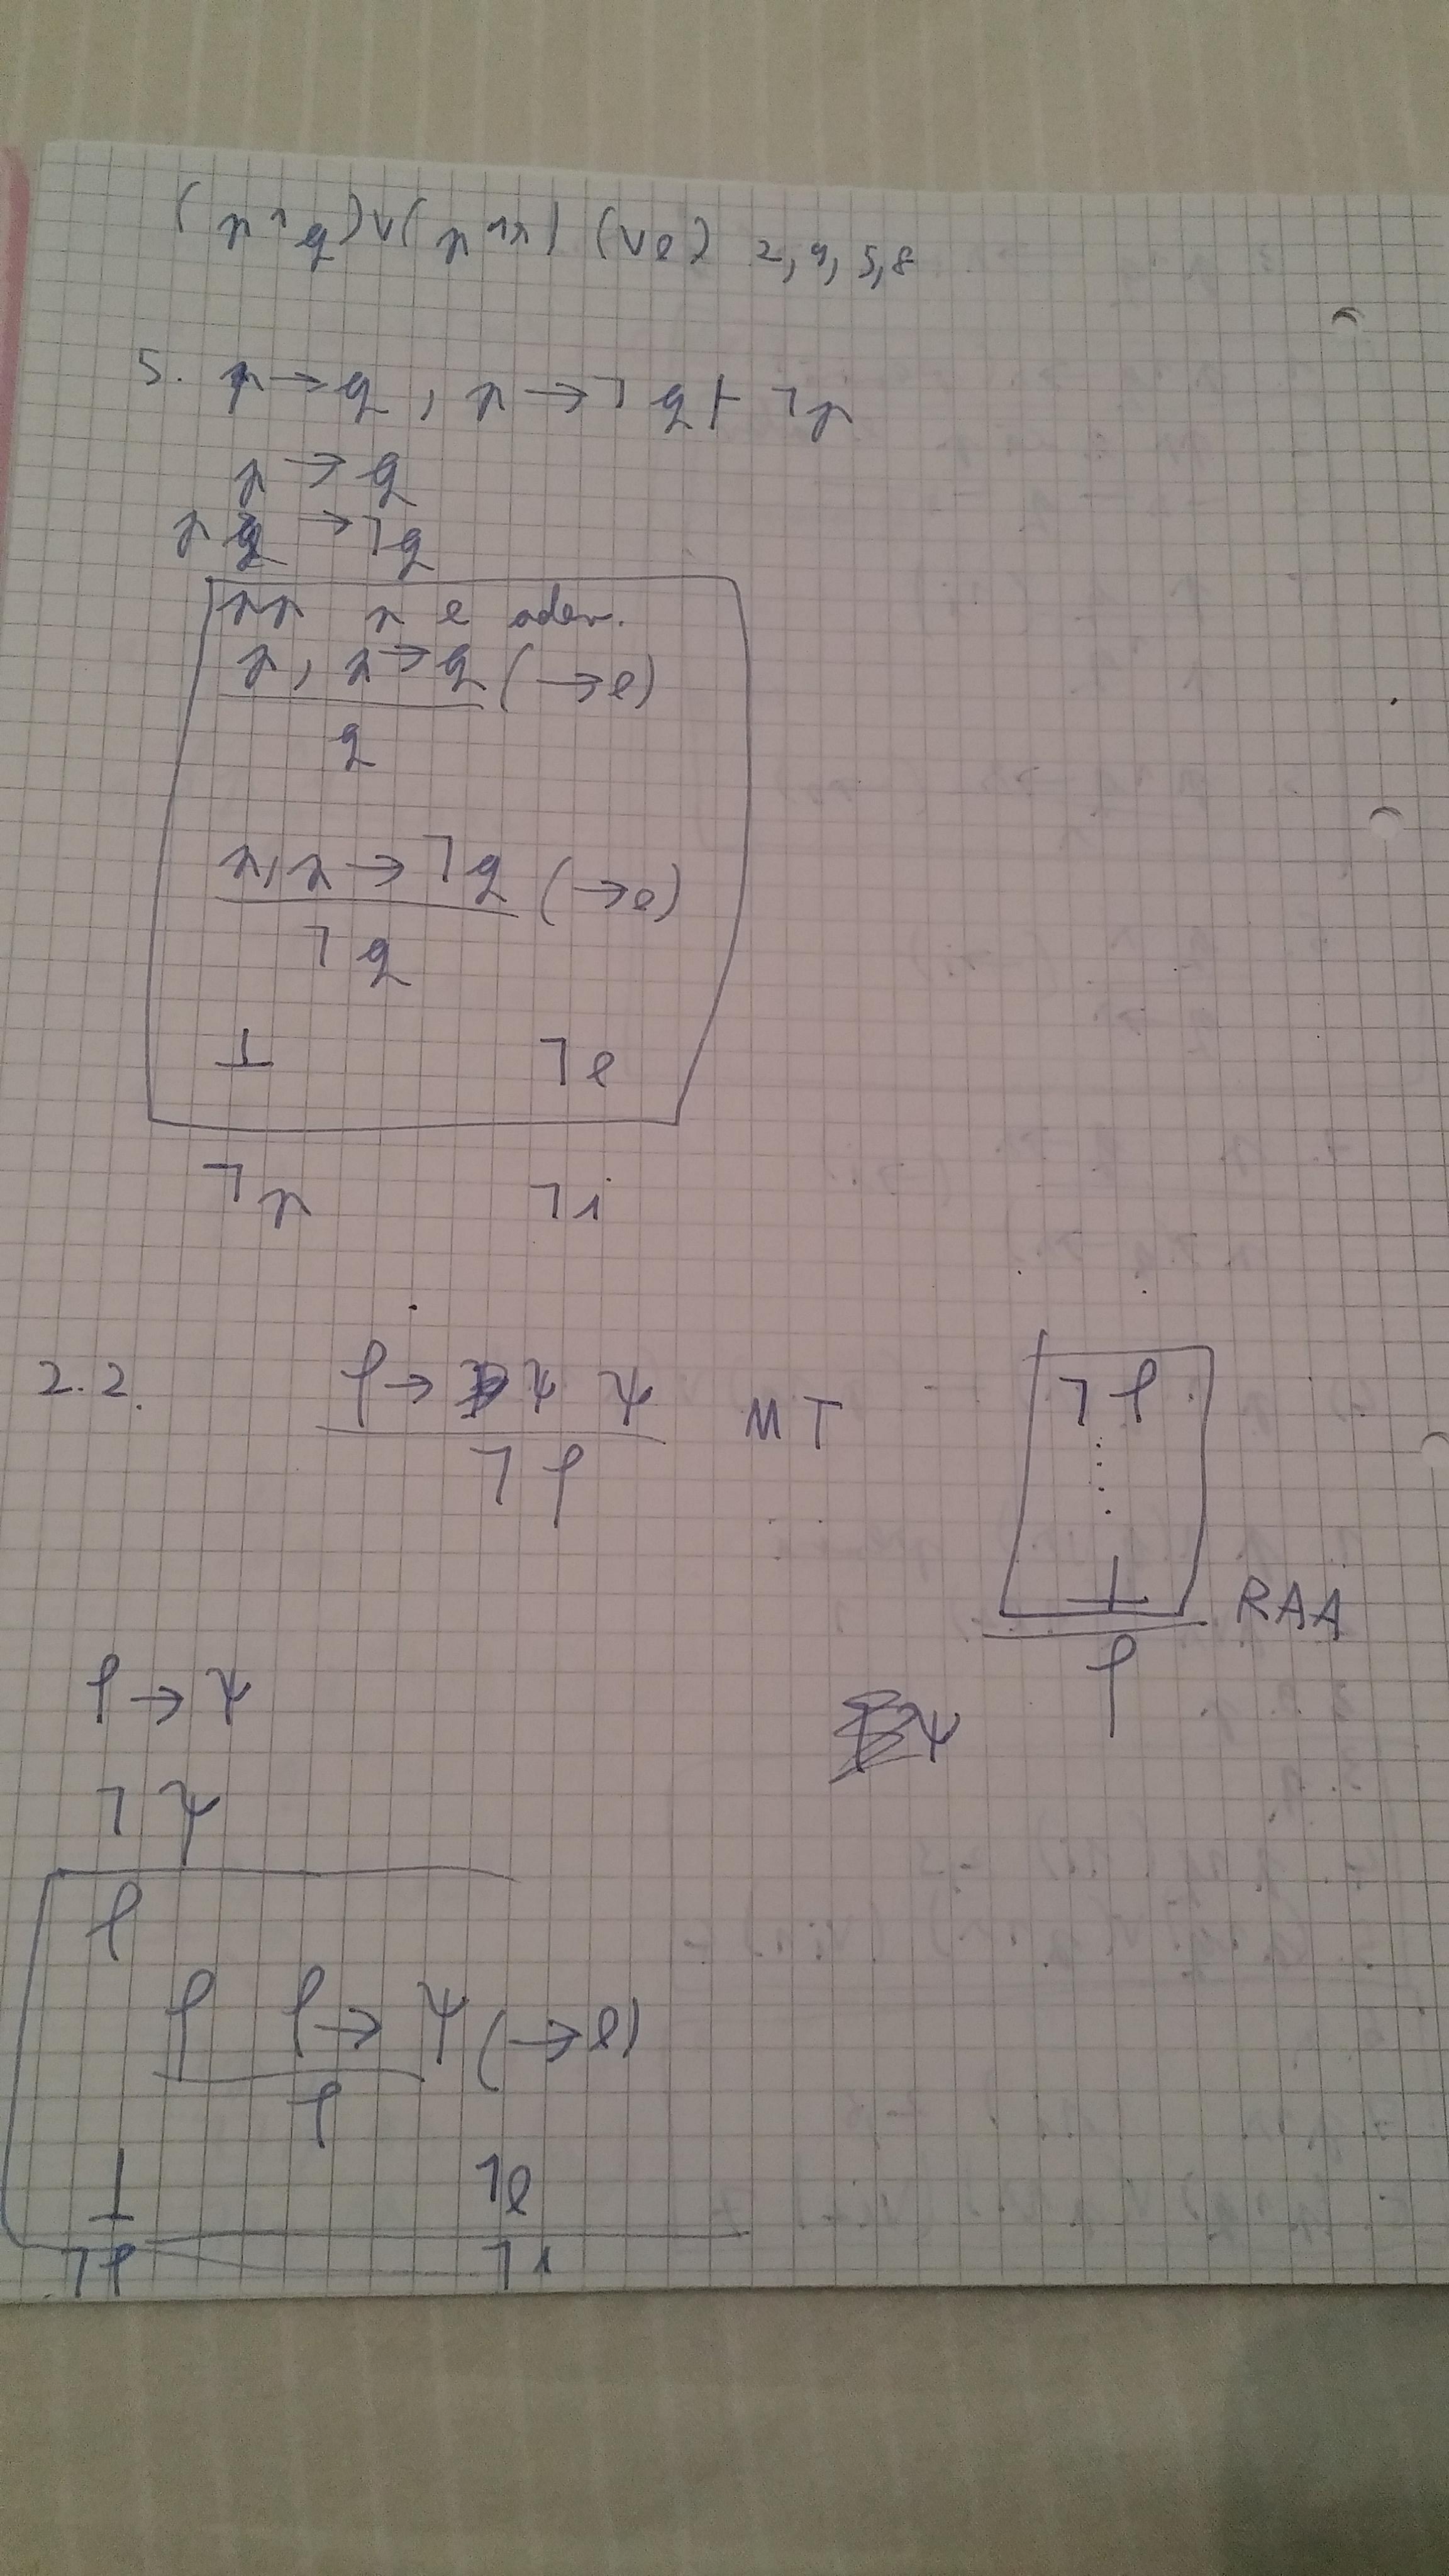 (p ∧ q) ∨ (p ∧ r) (∨e) 2, 4, 5, 8
5. p → q, p → ¬q ⊢ ¬p
p → q
p → ¬q
p e adev.
p, p → q (→e)
q
p, p → ¬q (→e)
¬q
⊥ ¬e
¬p ¬i
2.2. φ → ψ ψ MT
¬φ
¬φ
⋮
⊥ RAA
φ
ψ
φ → ψ
¬ψ
φ
φ φ → ψ (→e)
φ
⊥ ¬e
¬φ ¬i